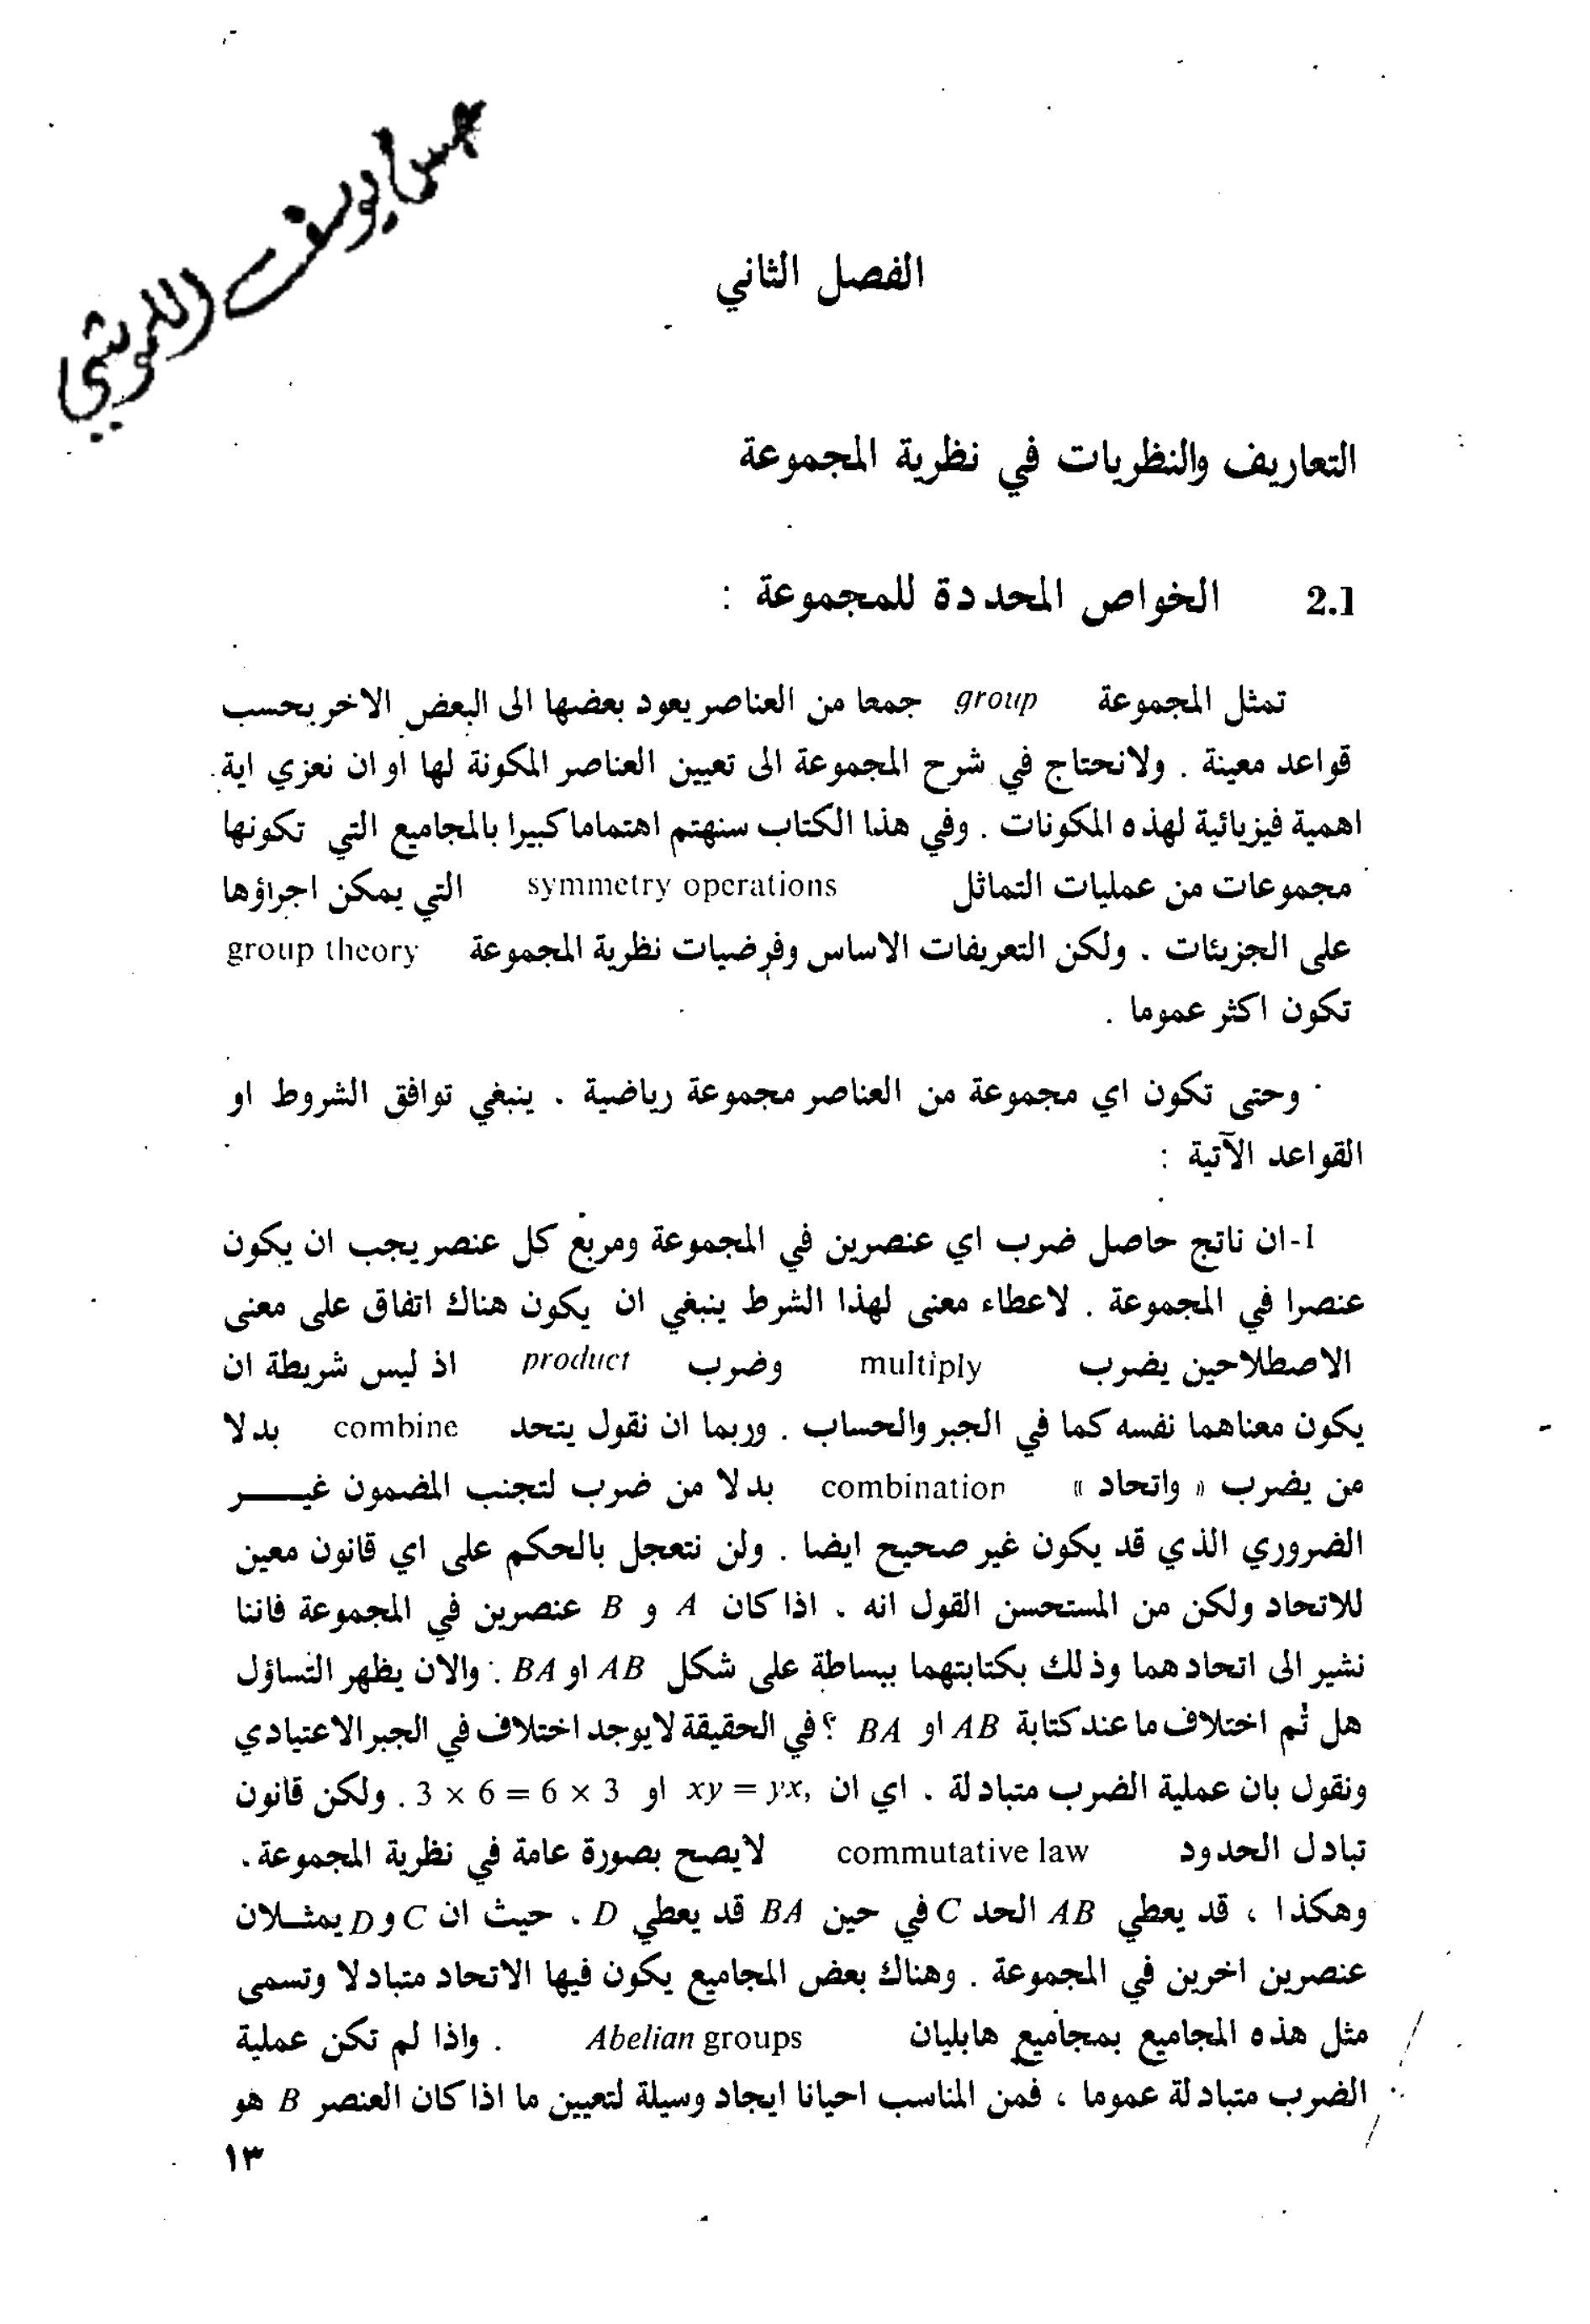 يوسف
الفصل الثاني
التعاريف والنظريات في نظرية المجموعة
2.1 الخواص المحددة للمجموعة :
تمثل المجموعة group جمعا من العناصر يعود بعضها الى البعض الاخر بحسب
قواعد معينة . ولانحتاج في شرح المجموعة الى تعيين العناصر المكونة لها او ان نعزي اية
اهمية فيزيائية لهذه المكونات . وفي هذا الكتاب سنهتم اهتماما كبيرا بالمجاميع التي تكونها
مجموعات من عمليات التماثل symmetry operations التي يمكن اجراؤها
على الجزيئات . ولكن التعريفات الاساس وفرضيات نظرية المجموعة group theory
تكون اكثر عموما .
وحتى تكون اي مجموعة من العناصر مجموعة رياضية . ينبغي توافق الشروط او
القواعد الآتية :
1-ان ناتج حاصل ضرب اي عنصرين في المجموعة ومربع كل عنصر يجب ان يكون
عنصرا في المجموعة . لاعطاء معنى لهذا الشرط ينبغي ان يكون هناك اتفاق على معنى
الاصطلاحين يضرب multiply وضرب product اذ ليس شريطة ان
يكون معناهما نفسه كما في الجبر والحساب . وربما ان نقول يتحد combine بدلا
من يضرب « واتحاد » combination بدلا من ضرب لتجنب المضمون غيـــر
الضروري الذي قد يكون غير صحيح ايضا . ولن نتعجل بالحكم على اي قانون معين
للاتحاد ولكن من المستحسن القول انه . اذا كان A و B عنصرين في المجموعة فاننا
نشير الى اتحادهما وذلك بكتابتهما ببساطة على شكل AB او BA . والان يظهر التساؤل
هل ثم اختلاف ما عند كتابة AB او BA ؟ في الحقيقة لايوجد اختلاف في الجبر الاعتيادي
ونقول بان عملية الضرب متبادلة . اي ان xy = yx, او 3 × 6 = 6 × 3 . ولكن قانون
تبادل الحدود commutative law لايصح بصورة عامة في نظرية المجموعة .
وهكذا ، قد يعطي AB الحد C في حين BA قد يعطي D . حيث ان C و D يمثــلان
عنصرين اخرين في المجموعة . وهناك بعض المجاميع يكون فيها الاتحاد متبادلا وتسمى
مثل هذه المجاميع بمجاميع هابليان Abelian groups . واذا لم تكن عملية
الضرب متبادلة عموما ، فمن المناسب احيانا ايجاد وسيلة لتعيين ما اذا كان العنصر B هو
١٣